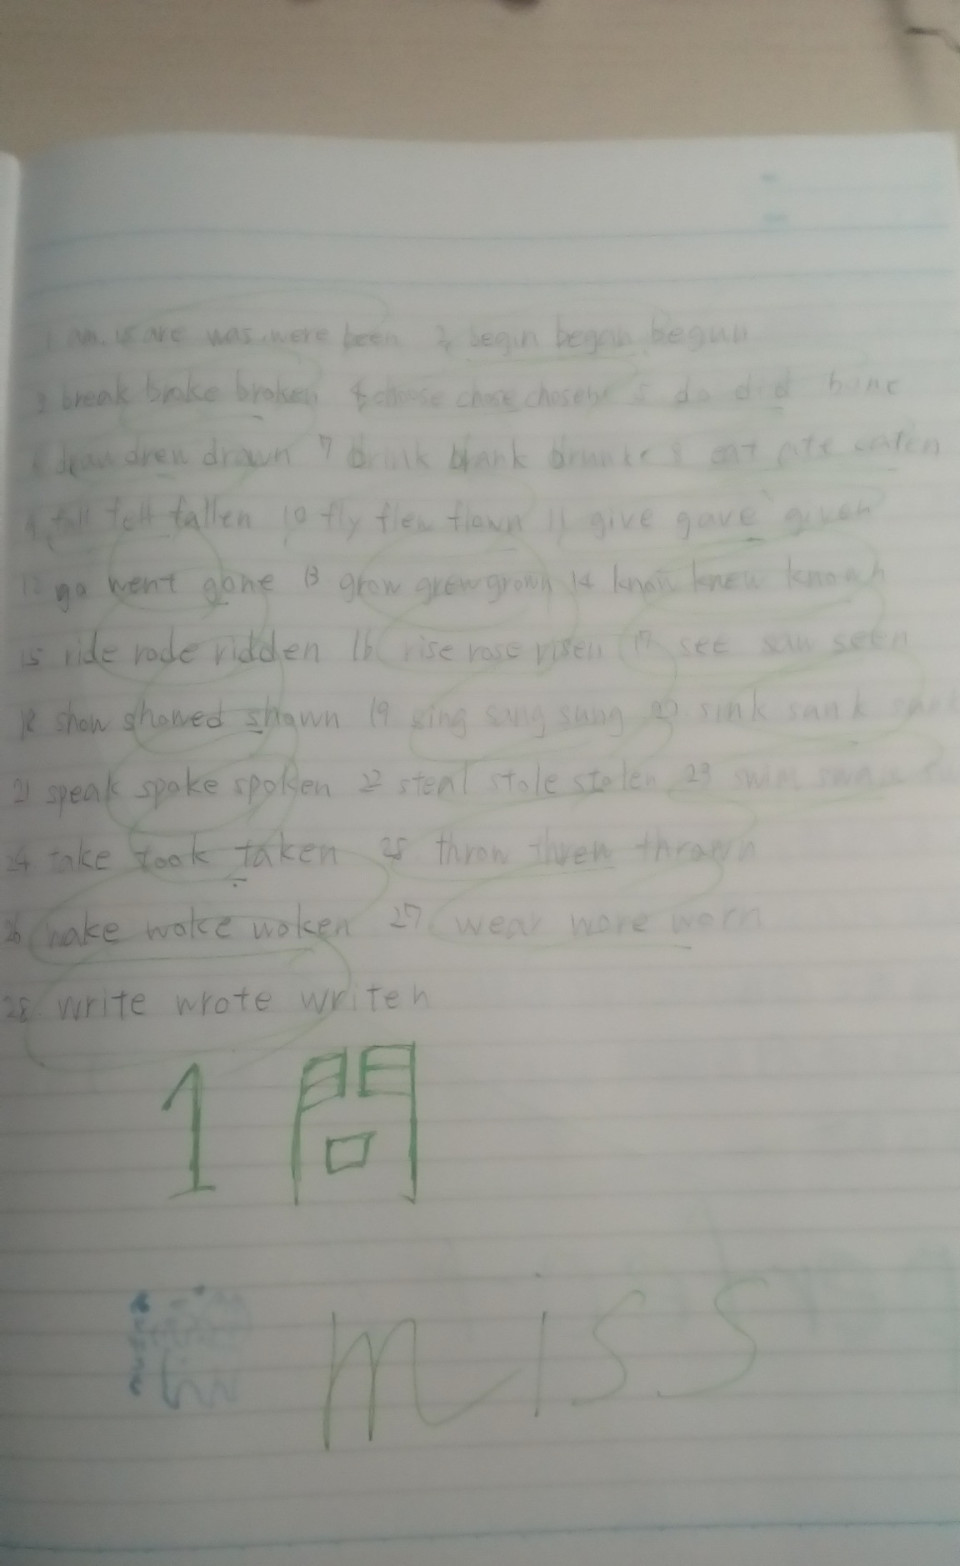 1 am, is are was, were been 2, begin began begun
3 break brake broken 4 choose chose chosen 5 do did
6 draw drew drawn 7 eat ate eaten
9, fall fell fallen 10 fly flew flown 11 give gave given
12 go went gone 13 grow grew grown 14 know knew known
15 ride rode ridden 16 rise rose risen 17 see saw seen
18 show showed shown 19 sing sang sung 20 sink sank
21 speak spoke spoken 22 steal stole stolen 23 swim swam
24 take took taken 25 throw threw thrown
26 woke woken 27 wear wore worn
28 write wrote writen
1問
miss